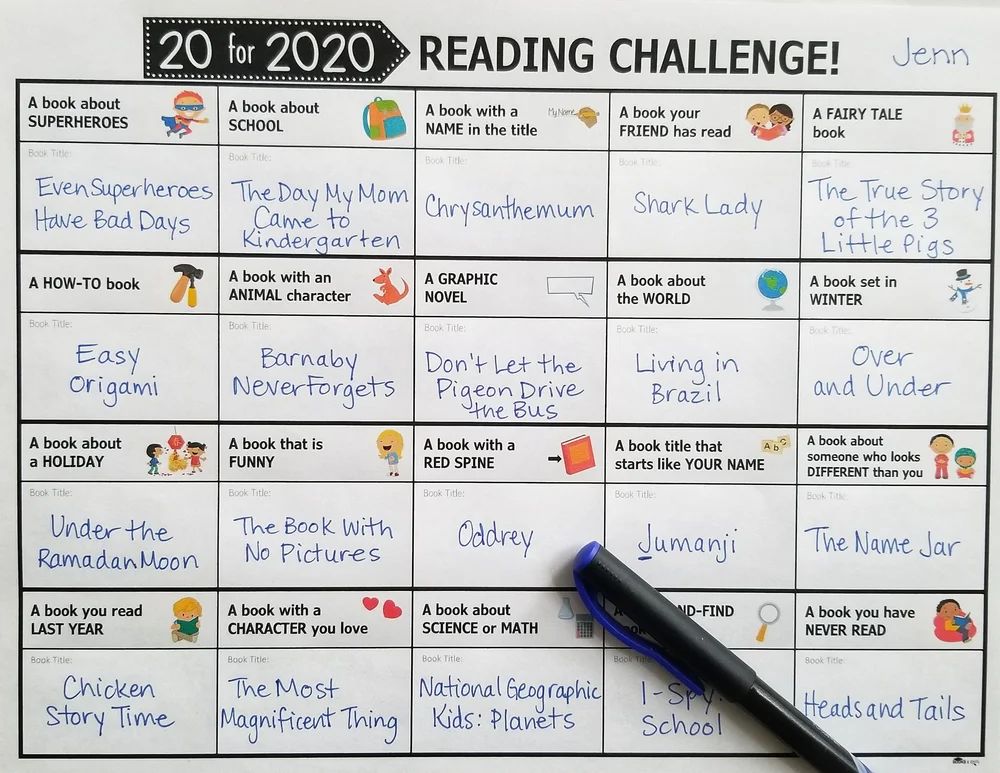 20 for 2020 READING CHALLENGE! Jenn
A book about
SUPERHEROES
A book about
SCHOOL
A book with a
NAME in the title
My Name
A book your
FRIEND has read
A FAIRY TALE
book
Book Title:
Even Superheroes
Have Bad Days
Book Title:
The Day My Mom
Came to
Kindergarten
Book Title:
Chrysanthemum
Book Title:
Shark Lady
Book Title:
The True Story
of the 3
Little Pigs
A HOW-TO book
A book with an
ANIMAL character
A GRAPHIC
NOVEL
A book about
the WORLD
A book set in
WINTER
Book Title:
Easy
Origami
Book Title:
Barnaby
Never Forgets
Book Title:
Don't Let the
Pigeon Drive
the Bus
Book Title:
Living in
Brazil
Book Title:
Over
and Under
A book about
a HOLIDAY
A book that is
FUNNY
A book with a
RED SPINE
A book title that
starts like YOUR NAME
A b c
A book about
someone who looks
DIFFERENT than you
Book Title:
Under the
Ramadan Moon
Book Title:
The Book With
No Pictures
Book Title:
Oddrey
Book Title:
Jumanji
Book Title:
The Name Jar
A book you read
LAST YEAR
A book with a
CHARACTER you love
A book about
SCIENCE or MATH
ND-FIND
A book you have
NEVER READ
Book Title:
Chicken
Story Time
Book Title:
The Most
Magnificent Thing
Book Title:
National Geographic
Kids: Planets
Book Title:
I-Spy:
School
Book Title:
Heads and Tails